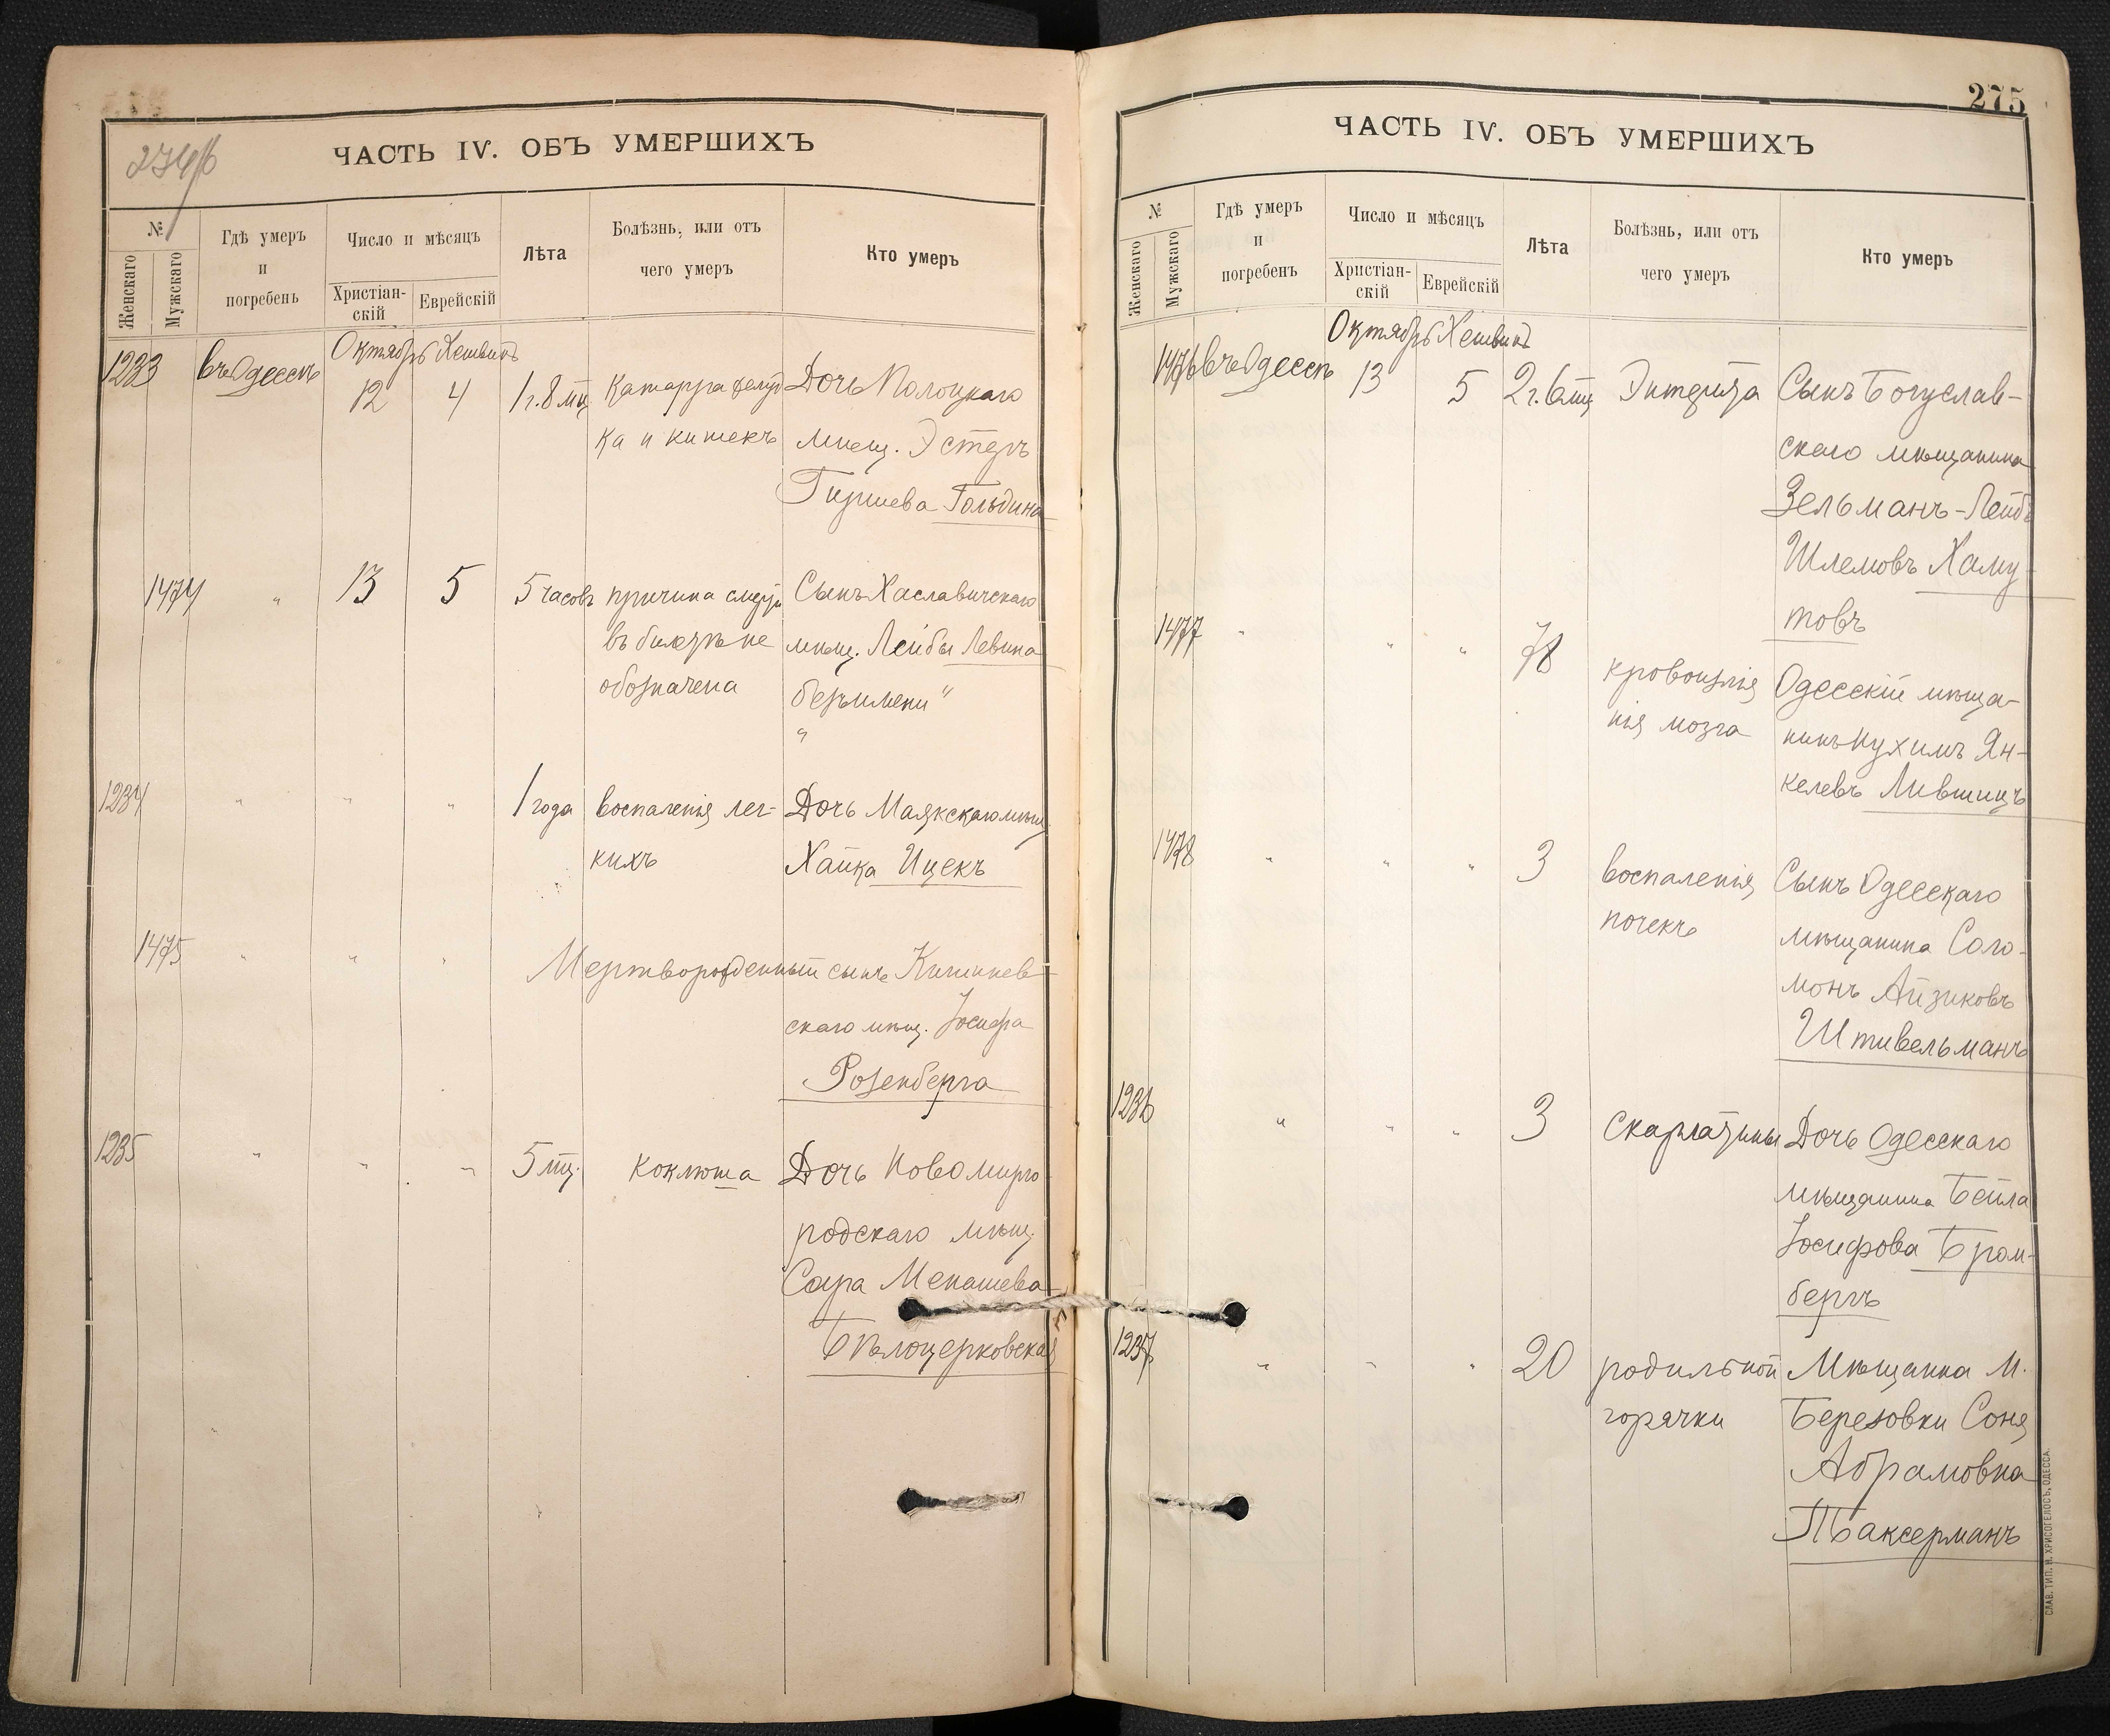 274/б
ЧАСТЬ IV. ОБЪ УМЕРШИХЪ
№
Женскаго
Мужскаго
Гдѣ умеръ
и
погребенъ
Число и мѣсяцъ
Христіан-
скій
Еврейскій
Лѣта
Болѣзнь, или отъ
чего умеръ
Кто умеръ
Октябрь Хешвинъ
1233 въ Одессѣ 12 4 1 г. 8 мц Катарра желуд Дочь Полоцкаго
ка и кишекъ мѣщ. Эстеръ
Гиршева Гольдина
1474 " 13 5 5 часовъ причина смерти Сынъ Хаславичскаго
въ билетѣ не мѣщ. Лейбы Левина
обозначена безъимени "
"
1234 " " " 1 года воспаленія лег- Дочь Маякскаго мѣщ.
кихъ Хайка Ицекъ
1475 " " " Мертворожденный сынъ Кишинев-
скаго мѣщ. Іосифа
Розенберга
1235 " " " 5 мц. коклюша Дочь Новомирго-
родскаго мѣщ.
Сара Менашева
Бѣлоцерковская
275
ЧАСТЬ IV. ОБЪ УМЕРШИХЪ
№
Женскаго
Мужскаго
Гдѣ умеръ
и
погребенъ
Число и мѣсяцъ
Христіан-
скій
Еврейскій
Лѣта
Болѣзнь, или отъ
чего умеръ
Кто умеръ
Октябрь Хешвинъ
1476 въ Одессѣ 13 5 2 г. 6 мц Энтерита Сынъ Богуслав-
скаго мѣщанина
Зельманъ-Лейбъ
Шлемовъ Хаму-
товъ
1477 " " " 78 кровоизлія Одесскій мѣща-
нія мозга нинъ Нухимъ Ян-
келевъ Лившицъ
1478 " " " 3 воспаленія Сынъ Одесскаго
почекъ мѣщанина Соло-
монъ Айзиковъ
Штивельманъ
1236 " " " 3 скарлатины Дочь Одесскаго
мѣщанина Бейла
Іосифова Бром-
бергъ
1237 " " " 20 родильной Мѣщанка м.
горячки Березовки Соня
Абрамовна
СЛАВ. ТИП. Н. ХРИСОГЕЛОСЪ, ОДЕССА.